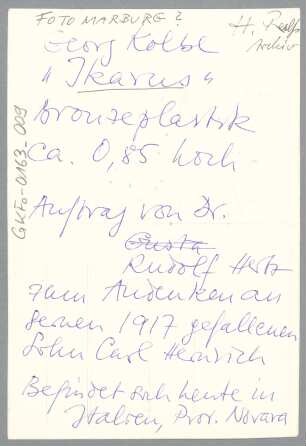 FOTO MARBURG ?
H.
Archiv
Georg Kolbe
"Ikarus"
Bronzeplastik
ca. 0,85 hoch
GKFo-0163_009
Auftrag von Dr.
Gusta
Rudolf Hertz
zum Andenken an
seinen 1917 gefallenen
Sohn Carl Heinrich
Befindet sich heute in
Italien, Prov. Novara